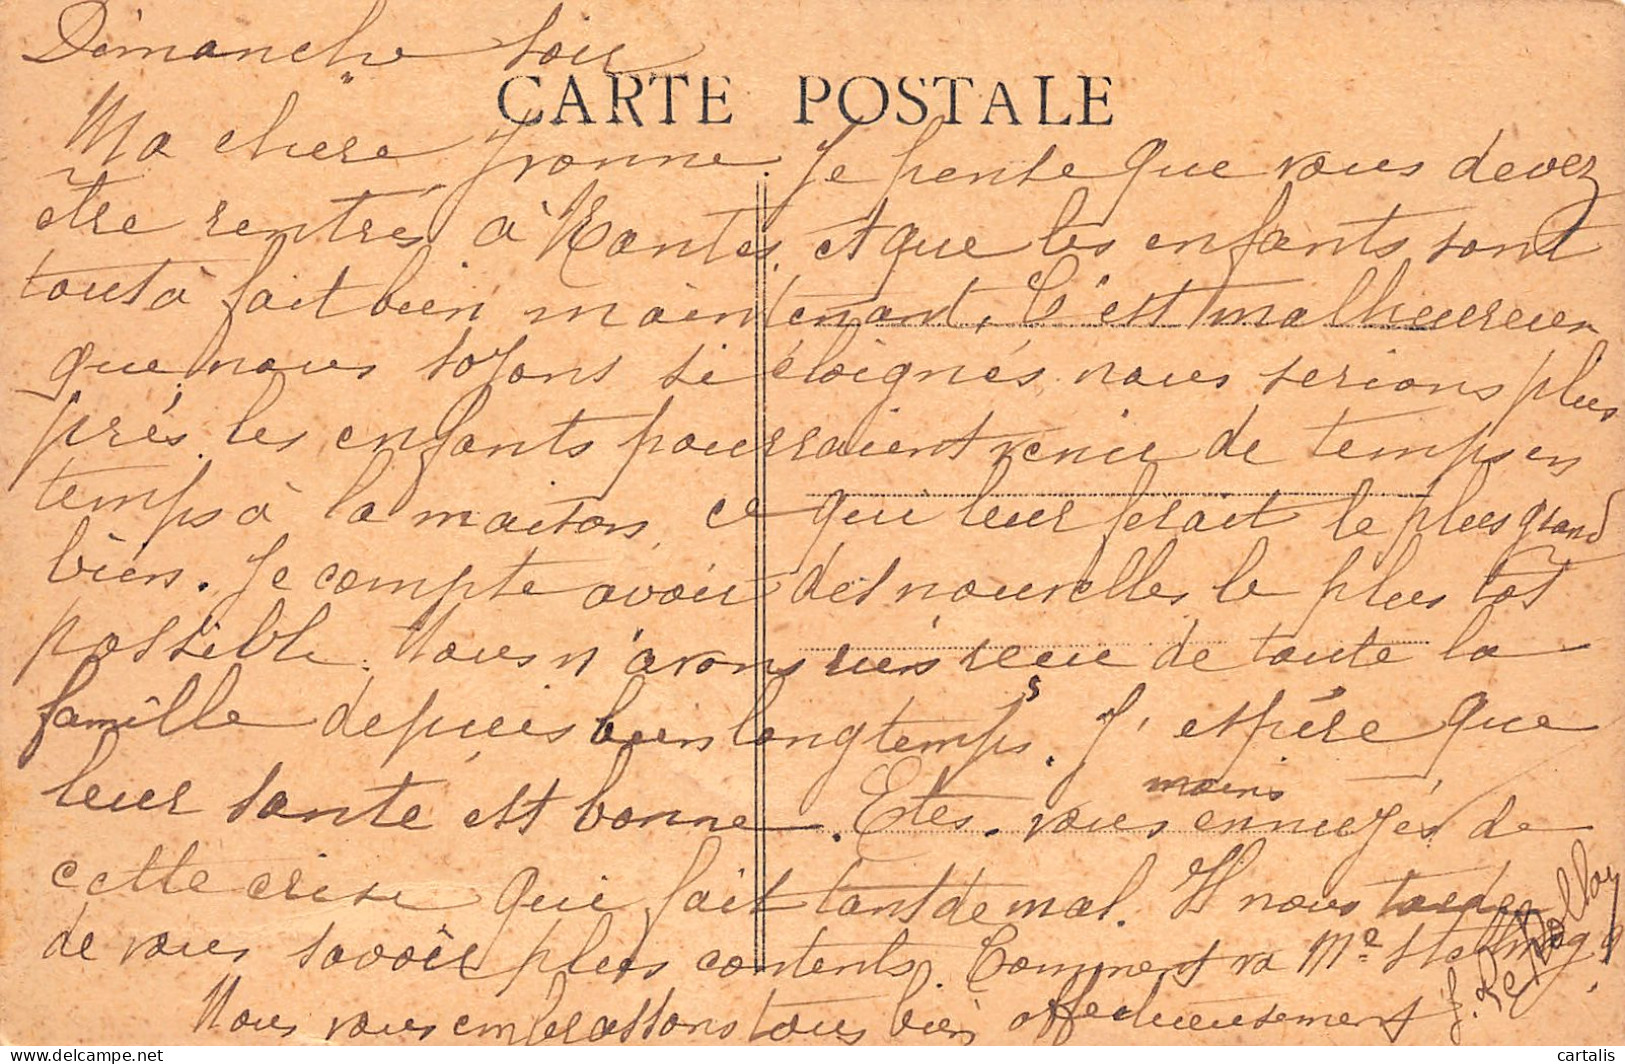 Dimanche soir
CARTE POSTALE
Ma chère Yvonne. Je pense que vous devez
être rentrés à Nantes, et que les enfants sont
tout à fait bien maintenant, C'est malheureux
que nous soyons si éloignés, nous serions plus
près, les enfants pourraient venir de temps en
temps à la maison, ce qui leur ferait le plus grand
bien. Je compte avoir des nouvelles le plus tôt
possible. Nous n'avons rien reçu de toute la
famille depuis bien longtemps. J'espère que
leur santé est bonne. Êtes-vous moins ennuyés de
cette crise qui fait tant de mal. Il nous tarde
de vous savoir plus contents. Comment va Me
Nous vous embrassons tous bien affectueusement J. Le
cartalis